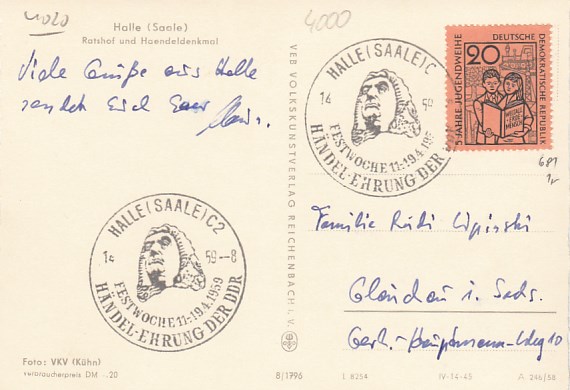 4020
4000
Halle (Saale)
Ratshof und Haendeldenkmal
Viele Grüße aus Halle
sendet Euch Euer
HALLE (SAALE) C
14 59
FESTWOCHE 11.-19.4.195
HÄNDEL-EHRUNG DER
5 JAHRE JUGENDWEIHE
DEUTSCHE
DEMOKRATISCHE REPUBLIK
20
681
VEB VOLKSKUNSTVERLAG REICHENBACH i. V.
HALLE (SAALE) C2
14 59-8
FESTWOCHE 11.-19.4.1959
HÄNDEL-EHRUNG DER DDR
Familie Rudi Lipinski
Glauchau i. Sachs.
Gerh.-Hauptmann-Weg 10
Foto: VKV (Kühn)
Verbraucherpreis DM -.20
8/1796
L 8254
IV-14-45
A 246/58